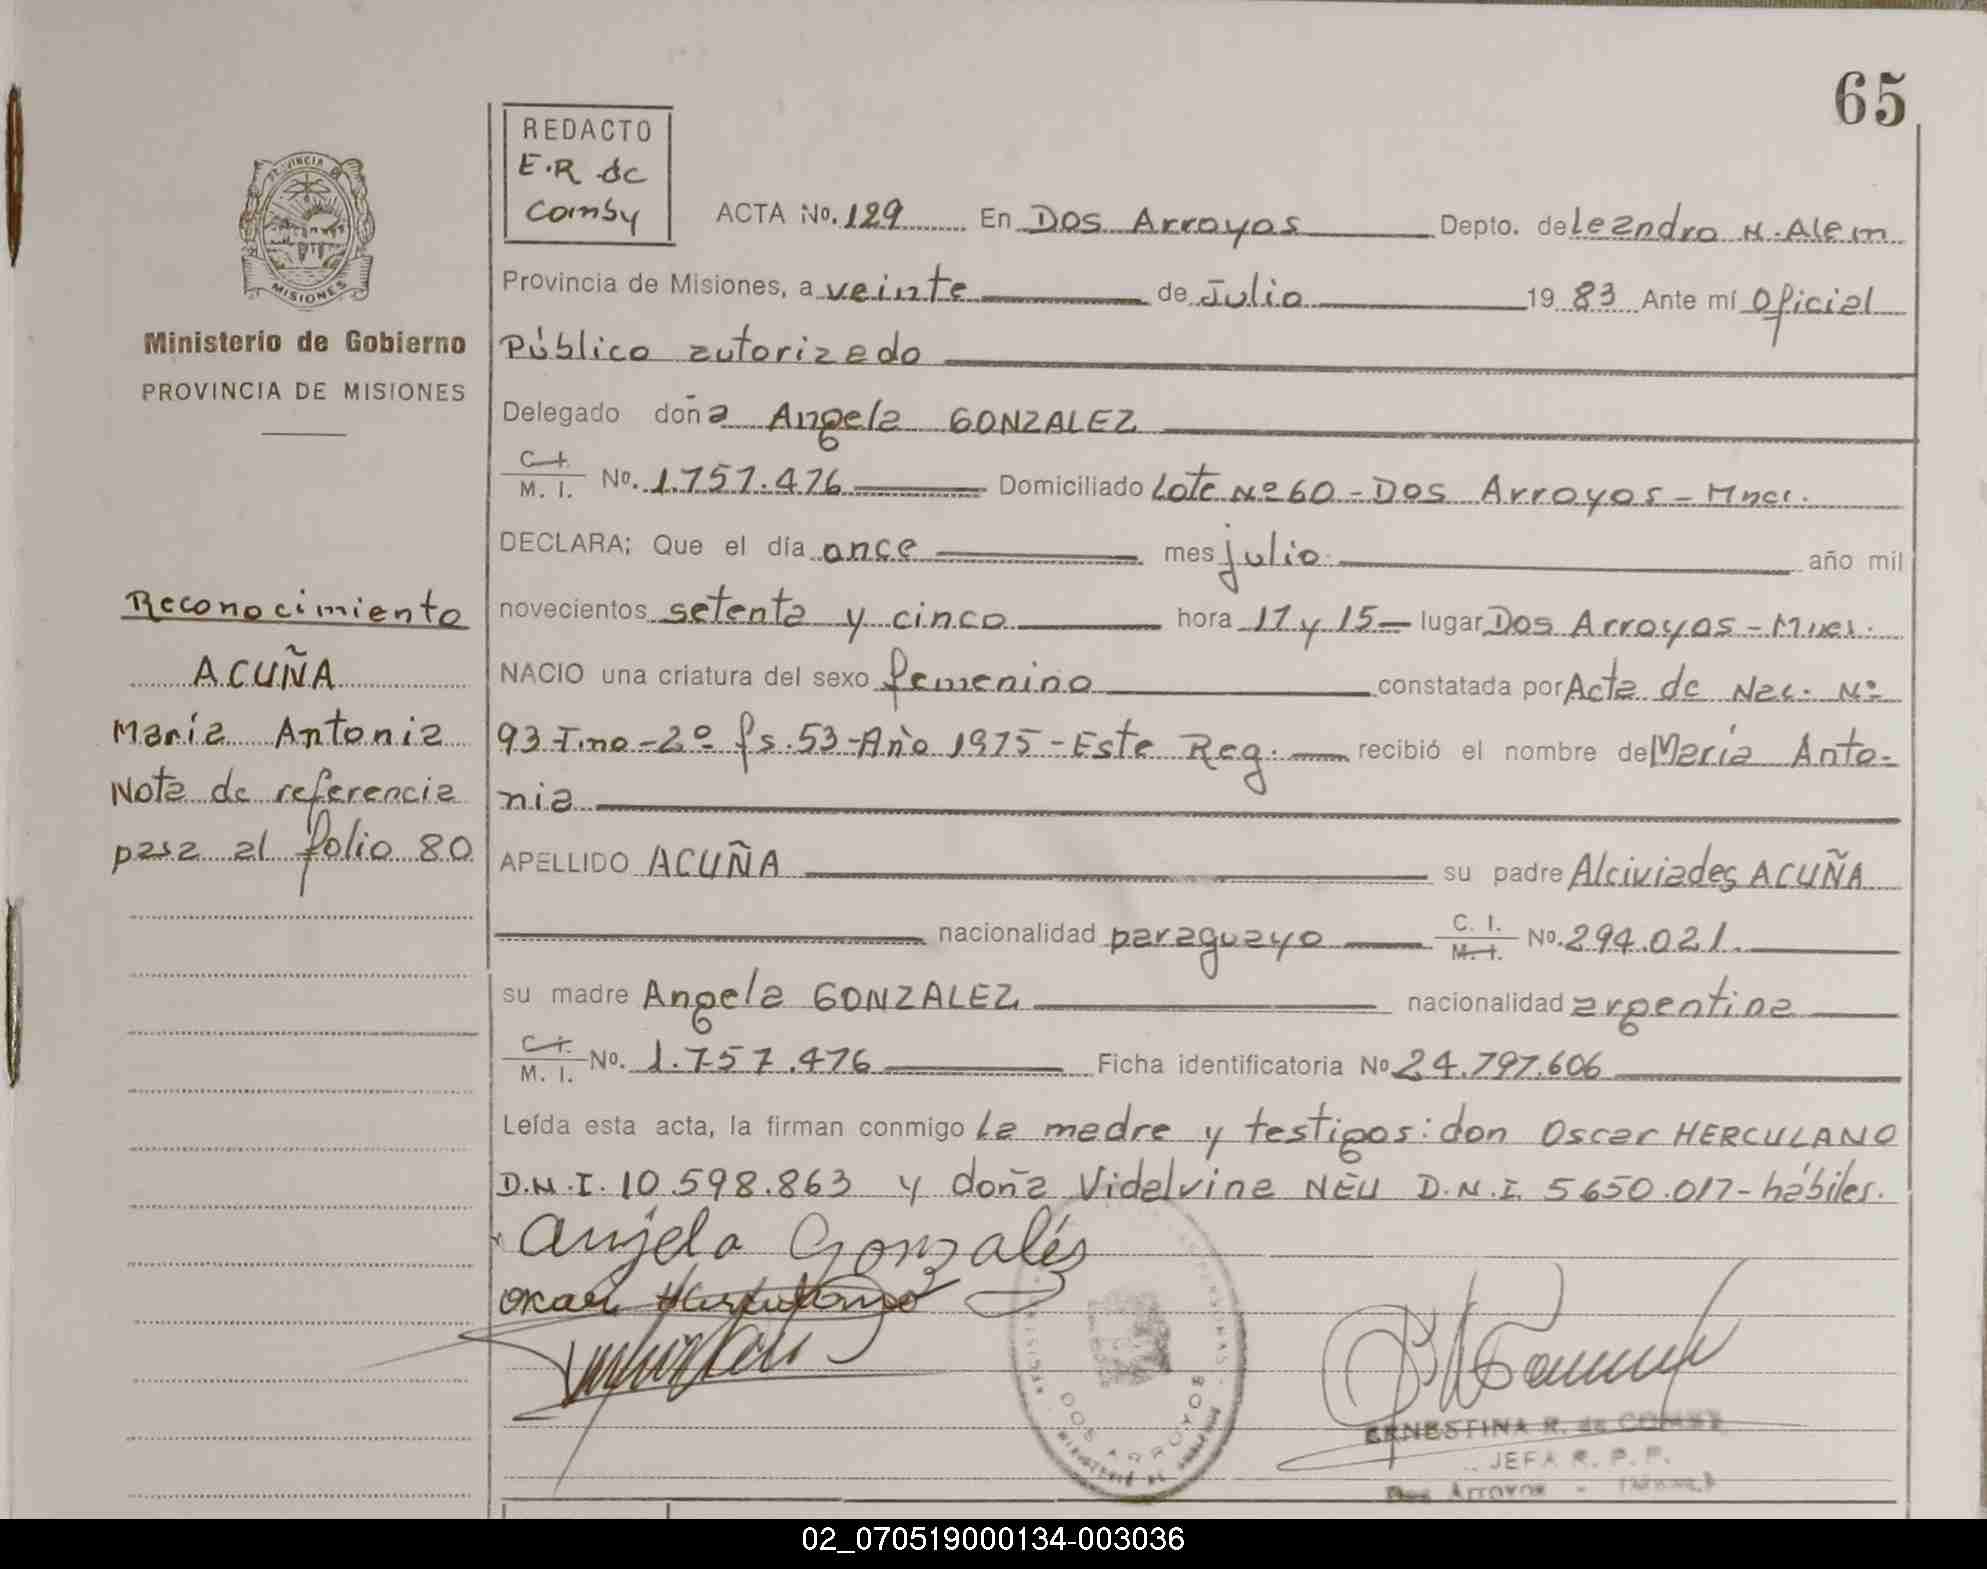 65
REDACTO
E.R de
Comby
ACTA No. 129 En Dos Arroyos Depto. de Leandro N. Alem
Provincia de Misiones, a veinte de Julio 19 83 Ante mí Oficial
Público autorizado
Delegado doña Angela GONZALEZ
C.I. / M. I. No. 1.757.476 Domiciliado Lote Nº 60 - Dos Arroyos - Mnes.
DECLARA; Que el día once mes julio año mil
novecientos setenta y cinco hora 11 y 15 - lugar Dos Arroyos - Mnes.
NACIO una criatura del sexo femenino constatada por Acta de Nac. Nº
93 Tmo - 2º fs. 53 - Año 1975 - Este Reg. recibió el nombre de María Anto-
nia
APELLIDO ACUÑA su padre Alciviades ACUÑA
nacionalidad paraguayo C. I. / M. I. No. 294.021.
su madre Angela GONZALEZ nacionalidad argentina
C.I. / M. I. No. 1.757.476 Ficha identificatoria No 24.797.606
Leída esta acta, la firman conmigo la madre y testigos: don Oscar HERCULANO
D.N.I. 10.598.863 y doña Vidalvina NEU D.N.I. 5650.017 - hábiles.
Anjela Gonzalés
PROVINCIA
MISIONES
Ministerio de Gobierno
PROVINCIA DE MISIONES
Reconocimiento
ACUÑA
María Antonia
Nota de referencia
pasa al folio 80
DOS ARROYOS
ERNESTINA R. de COMBY
JEFA R. P. P.
Dos Arroyos - Misiones
02_070519000134-003036